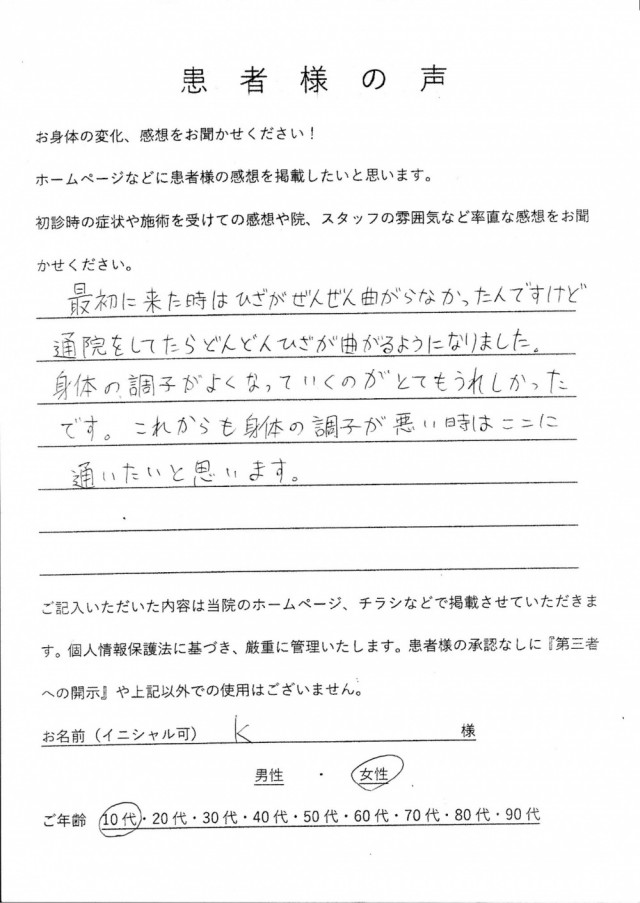 患者様の声
お身体の変化、感想をお聞かせください！
ホームページなどに患者様の感想を掲載したいと思います。
初診時の症状や施術を受けての感想や院、スタッフの雰囲気など率直な感想をお聞
かせください。
最初に来た時はひざがぜんぜん曲がらなかったんですけど
通院をしてたらどんどんひざが曲がるようになりました。
身体の調子がよくなっていくのがとてもうれしかった
です。これからも身体の調子が悪い時はここに
通いたいと思います。
ご記入いただいた内容は当院のホームページ、チラシなどで掲載させていただきま
す。個人情報保護法に基づき、厳重に管理いたします。患者様の承認なしに『第三者
への開示』や上記以外での使用はございません。
お名前（イニシャル可） K 様
男性 ・ 女性
ご年齢 10代・20代・30代・40代・50代・60代・70代・80代・90代